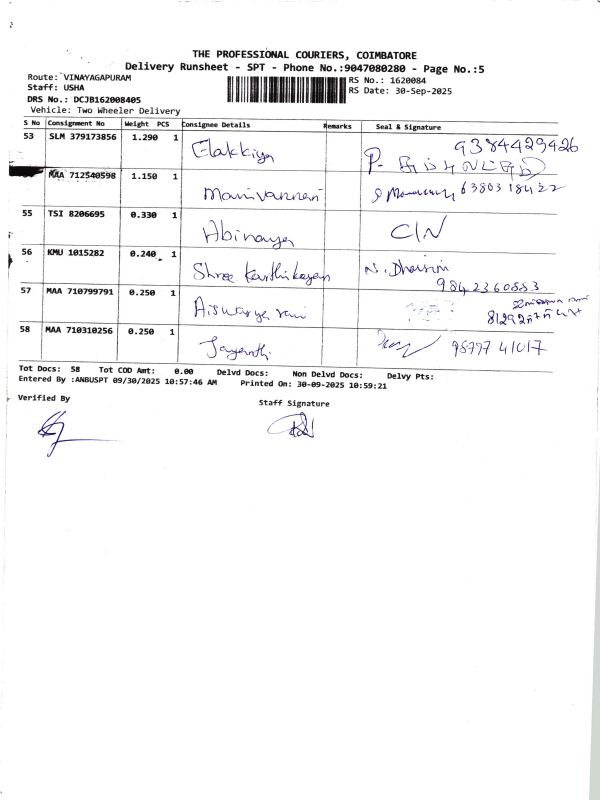 THE PROFESSIONAL COURIERS, COIMBATORE
Delivery Runsheet - SPT - Phone No.:9047080280 - Page No.:5
Route: VINAYAGAPURAM
Staff: USHA
DRS No.: DCJB162008405
Vehicle: Two Wheeler Delivery
RS No.: 1620084
RS Date: 30-Sep-2025
S No Consignment No Weight PCS Consignee Details Remarks Seal & Signature
53 SLM 379173856 1.290 1 Elakkiya 9384429426
MAA 712540598 1.150 1 Manivannan 6380318422
55 TSI 8206695 0.330 1 Abinaya C/N
56 KMU 1015282 0.240 1 Shree Karthikeyan N. Dharini
9842360883
57 MAA 710799791 0.250 1 Aiswarya rani
58 MAA 710310256 0.250 1 Jayanthi 98797 41017
Tot Docs: 58 Tot COD Amt: 0.00 Delvd Docs: Non Delvd Docs: Delvy Pts:
Entered By :ANBUSPT 09/30/2025 10:57:46 AM Printed On: 30-09-2025 10:59:21
Verified By
Staff Signature